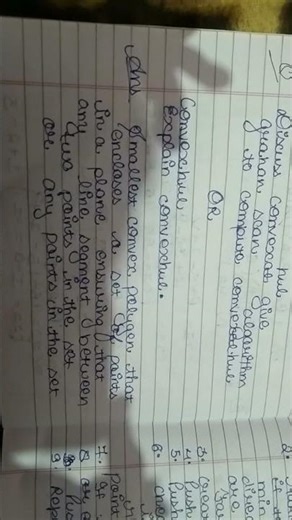 Discuss convexcal give hull
graham scan algorithm
to compute convexhul
OR
Convexhull
Explain convexhul.
Ans Smallest convex polygon that
encloses a set of points
in a plane ensuring that
any line segment between
two points in the set
or any points in the set
2.
min
are,
3.
4. Push
5. Push
6.
7. If
point
8.
9. Rep